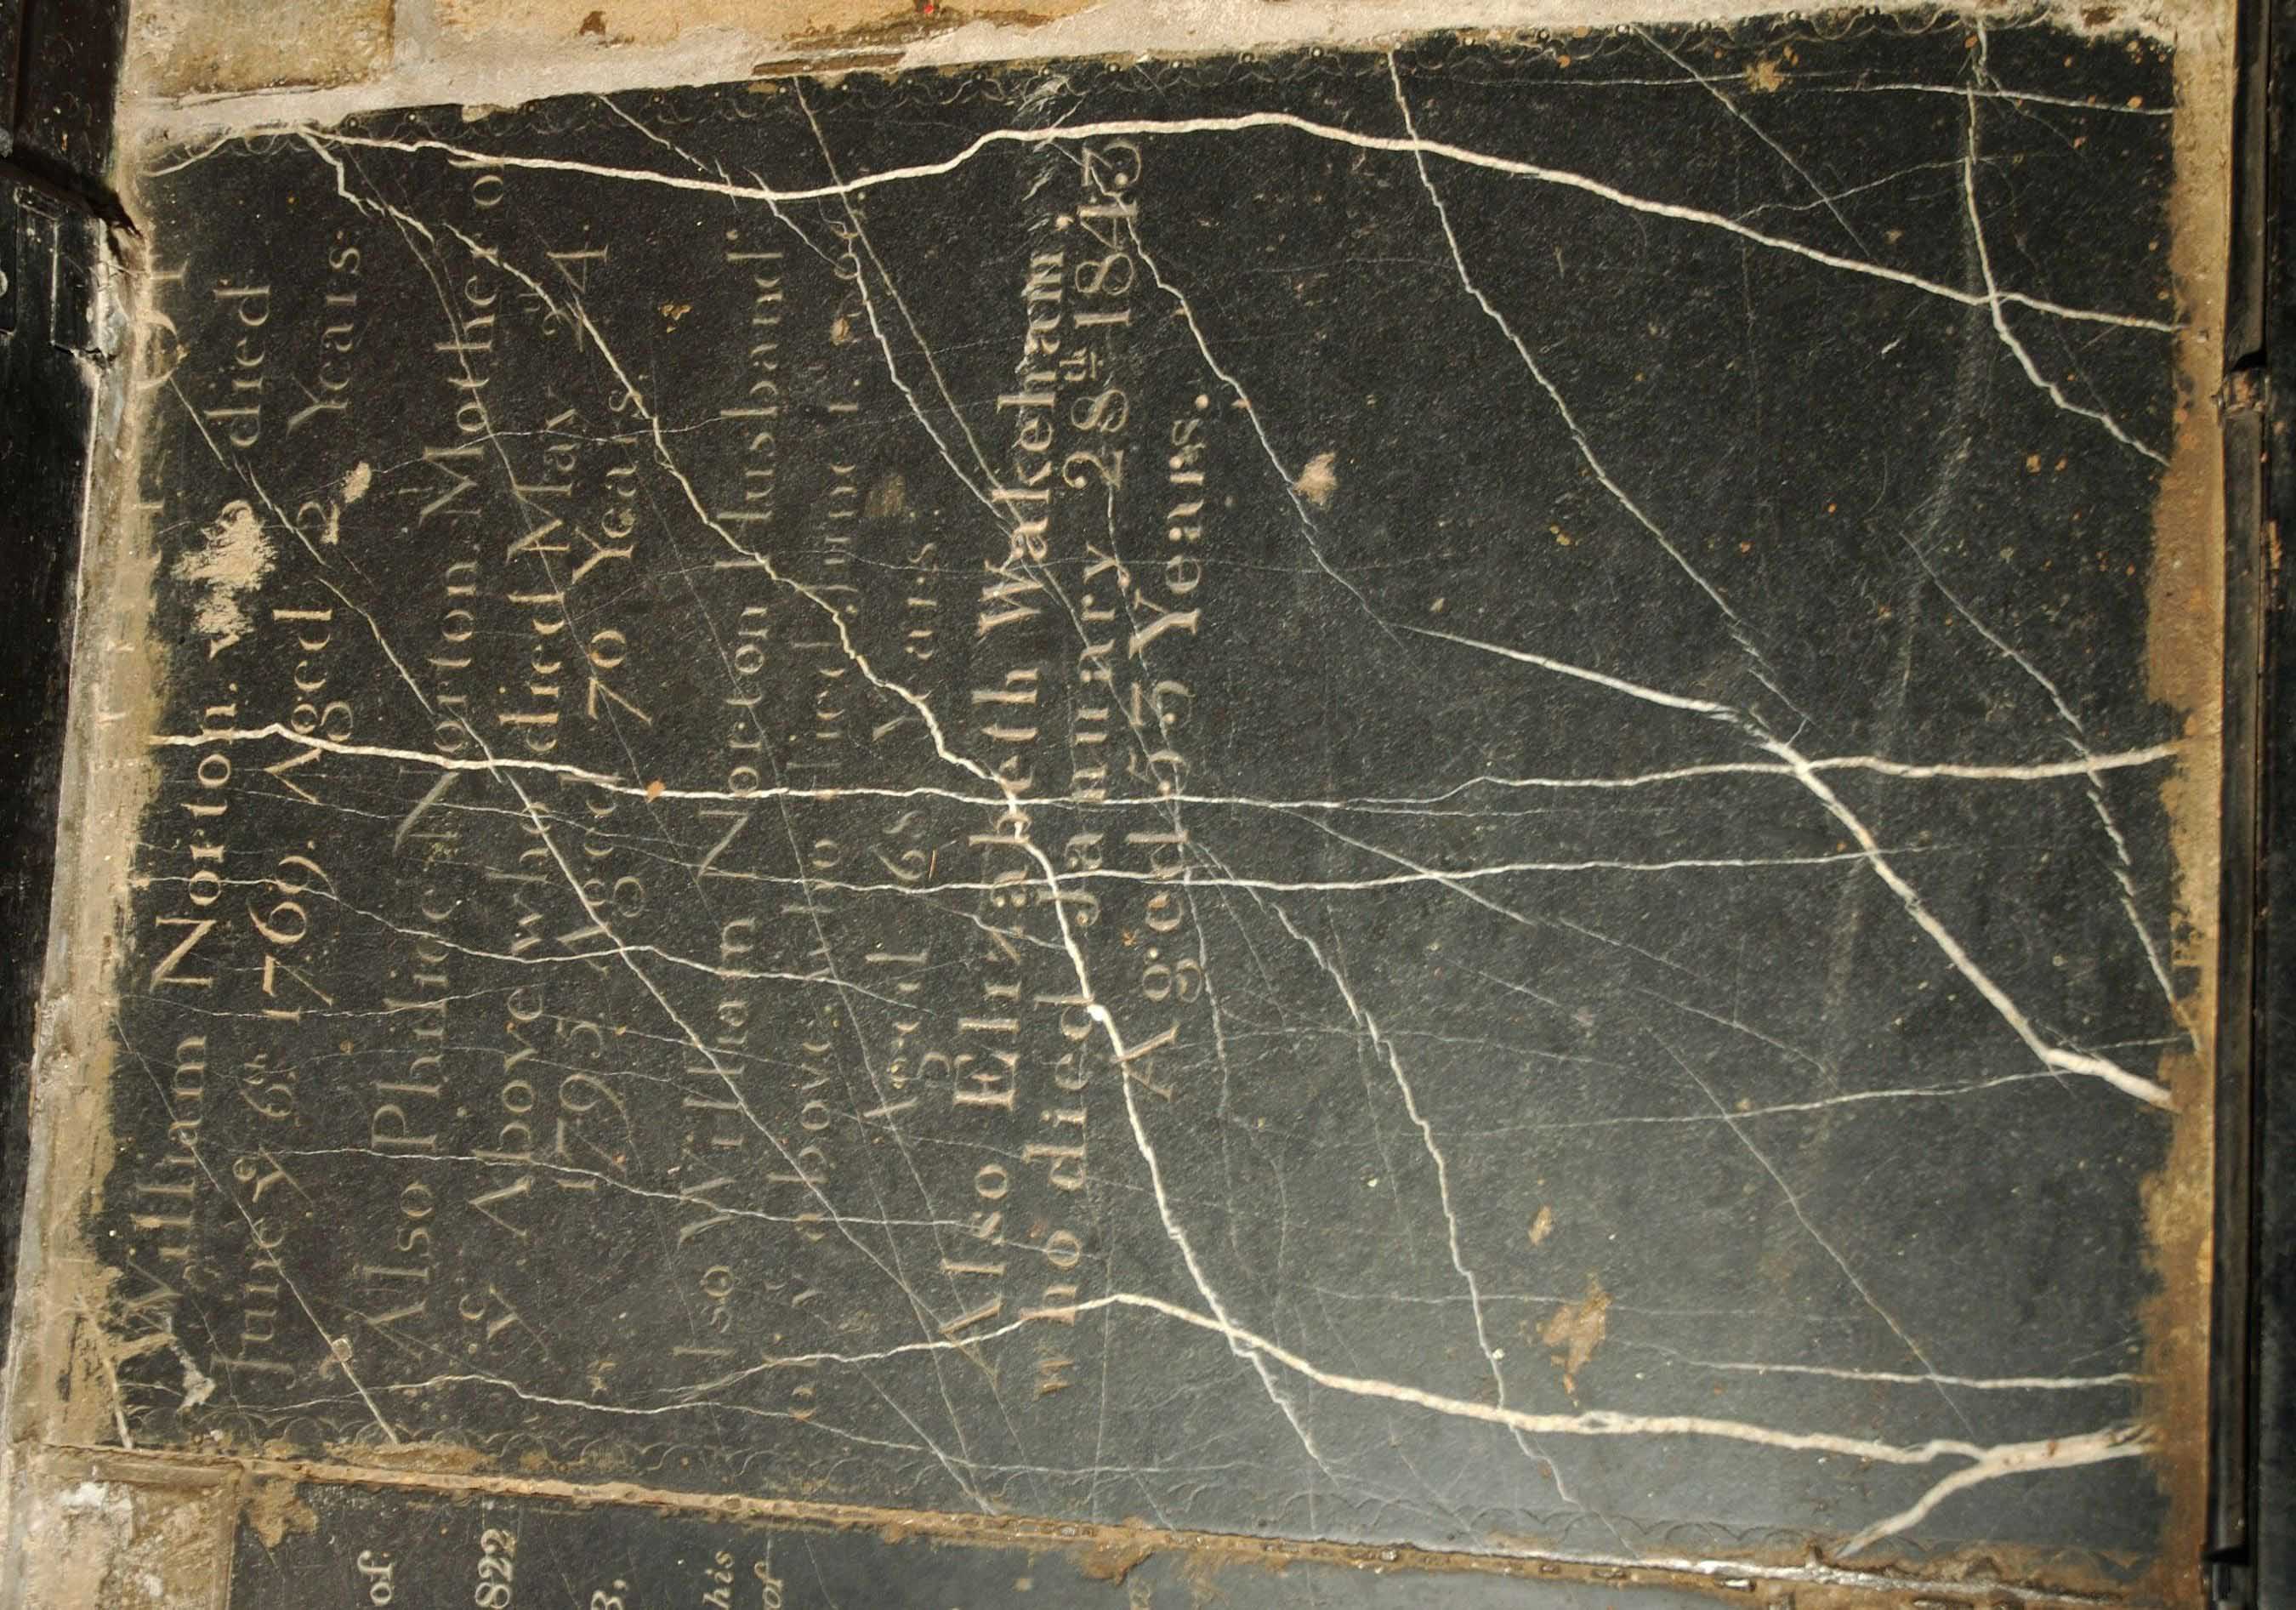 William Norton. w died
June yᵉ 6ᵗʰ 1769. Aged 2 Years
8
Also Philidea Norton Mother of
yᵉ Above who died May yᵉ 24ᵗʰ
1795 Aged 70 Years
lso William Norton Husband
o yᵉ bove who died June
Aged 68 Years
Also Elizabeth Wakeham,
who died January 28ᵗʰ 1843
Aged 53 Years.
of
822
3,
his
of